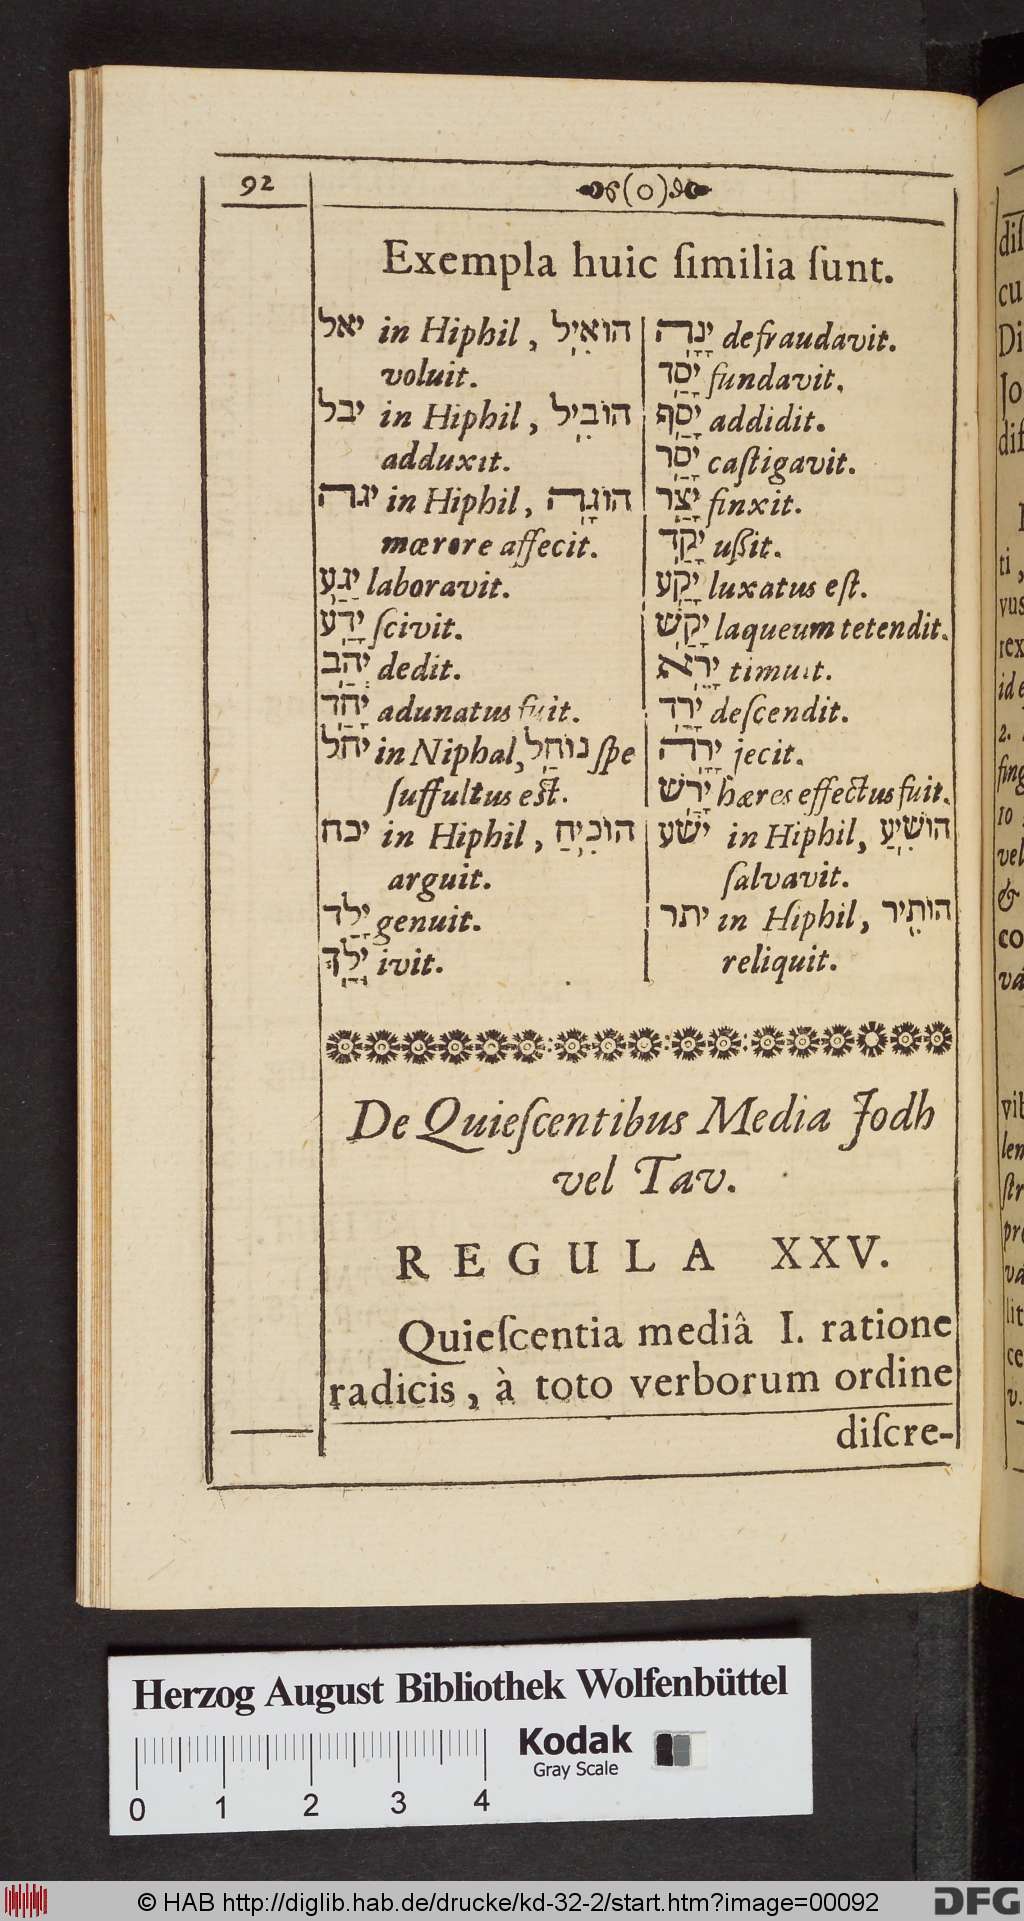 92
(o)
Exempla huic ſimilia ſunt.
יאל in Hiphil, הוֹאִיל
voluit.
יבל in Hiphil, הוֹבִיל
adduxit.
יגה in Hiphil, הוֹגָה
mœrore affecit.
יָגַע laboravit.
יָדַע ſcivit.
יָהַב dedit.
יָחַד adunatus fuit.
יחל in Niphal, נוֹחַל ſpe
ſuffultus eſt.
יכח in Hiphil, הוֹכִיחַ
arguit.
יָלַד genuit.
יָלַךְ ivit.
יָנָה defraudavit.
יָסַד fundavit.
יָסַף addidit.
יָסַר caſtigavit.
יָצַר finxit.
יָקַד uſſit.
יָקַע luxatus eſt.
יָקַשׁ laqueum tetendit.
יָרֵא timuit.
יָרַד deſcendit.
יָרָה jecit.
יָרַשׁ hæres effectus fuit.
ישׁע in Hiphil, הוֹשִׁיעַ
ſalvavit.
יתר in Hiphil, הוֹתִיר
reliquit.
De Quieſcentibus Media Jodh
vel Tav.
REGULA XXV.
Quieſcentia mediâ I. ratione
radicis, à toto verborum ordine
diſcre-
diſ
cu
Di
Jo
diſ
ti,
vus
rex
ide
2.
fing
10
vel
&
co
va
vib
len
ſtr
pro
va
lit
ce
v.
Herzog August Bibliothek Wolfenbüttel
Kodak
Gray Scale
0 1 2 3 4
© HAB http://diglib.hab.de/drucke/kd-32-2/start.htm?image=00092
DFG